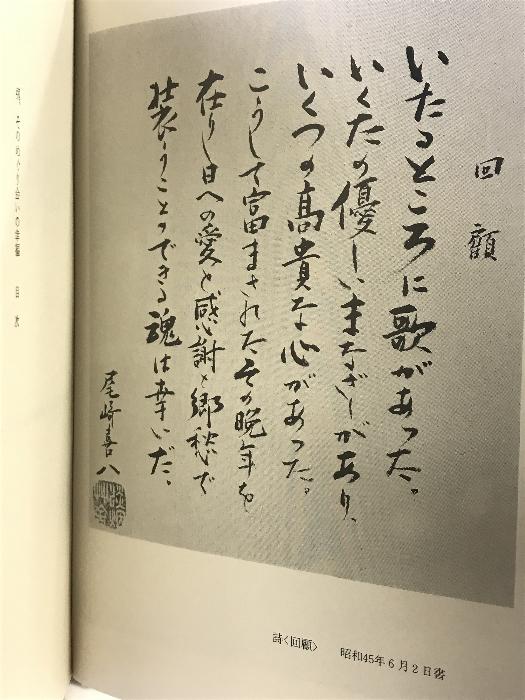 回顧
いたるところに歌があった。
いくたの優しいまなざしがあり、
いくつの高貴な心があった。
こうして富まされたその晩年を
在りし日への愛と感謝と郷愁で
装うことのできる魂は幸いだ、
尾崎喜八
詩〈回顧〉　昭和45年6月2日書
そのめぐり会いの幸福　目次